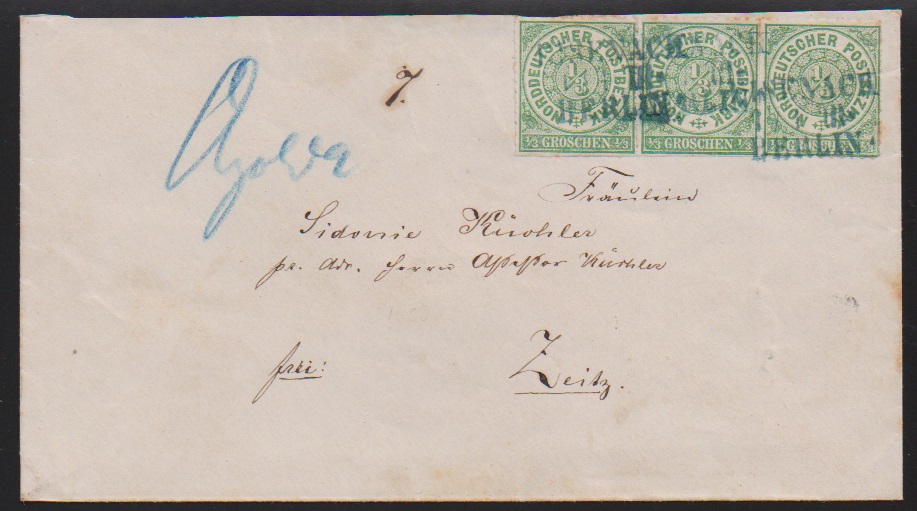 NORDDEUTSCHER POSTBEZIRK
1/3
1/3 GROSCHEN 1/3
NORDDEUTSCHER POSTBEZIRK
1/3
1/3 GROSCHEN 1/3
NORDDEUTSCHER POSTBEZIRK
1/3
1/3 GROSCHEN 1/3
BERLIN
BERLIN
7.
Apolda
Fräulein
Sidonie Küchler
pr. Adr. Herrn Assessor Küchler
frei:
Zeitz.